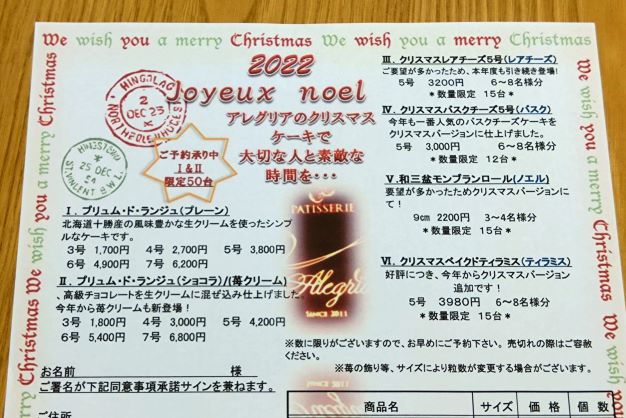 We wish you a merry Christmas We wish you a merry Christmas We
2022
Joyeux noel
アレグリアのクリスマス
ケーキで
大切な人と素敵な
時間を・・・
2
DEC 23
25 DEC
ご予約承り中
Ⅰ&Ⅱ
限定50台
PATISSERIE
Alegria
SINCE 2011
Ⅰ．プリュム・ド・ランジュ(プレーン)
北海道十勝産の風味豊かな生クリームを使ったシンプ
ルなケーキです。
3号 1,700円 4号 2,700円 5号 3,800円
6号 4,900円 7号 6,200円
Ⅱ．プリュム・ド・ランジュ(ショコラ)/(苺クリーム)
、高級チョコレートを生クリームに混ぜ込み仕上げました。
今年から苺クリームも新登場！
3号 1,800円 4号 3,000円 5号 4,200円
6号 5,400円 7号 6,800円
お名前 様
ご署名が下記同意事項承諾サインを兼ねます。
ご住所
Ⅲ．クリスマスレアチーズ5号(レアチーズ)
ご要望が多かったため、本年度も引き続き登場!
5号 3200円 6～8名様分
*数量限定 15台*
Ⅳ．クリスマスバスクチーズ5号(バスク)
今年も一番人気のバスクチーズケーキを
クリスマスバージョンに仕上げました。
5号 3,000円 6～8名様分
*数量限定 12台*
Ⅴ．和三盆モンブランロール(ノエル)
要望が多かったためクリスマスバージョンに
て！
9㎝ 2200円 3～4名様分
*数量限定 15台*
Ⅵ．クリスマスベイクドティラミス(ティラミス)
好評につき、今年からクリスマスバージョン
追加です！
5号 3980円 6～8名様分
*数量限定 15台*
※数に限りがございますので、お早めにご予約下さい。売切れの際はご容赦
ください。
※苺の飾り等、サイズにより粒数が変更する場合がございます。
商品名 サイズ 価格 個数
Christmas We wish you a merry Christmas
wish you a merry Christmas We wish